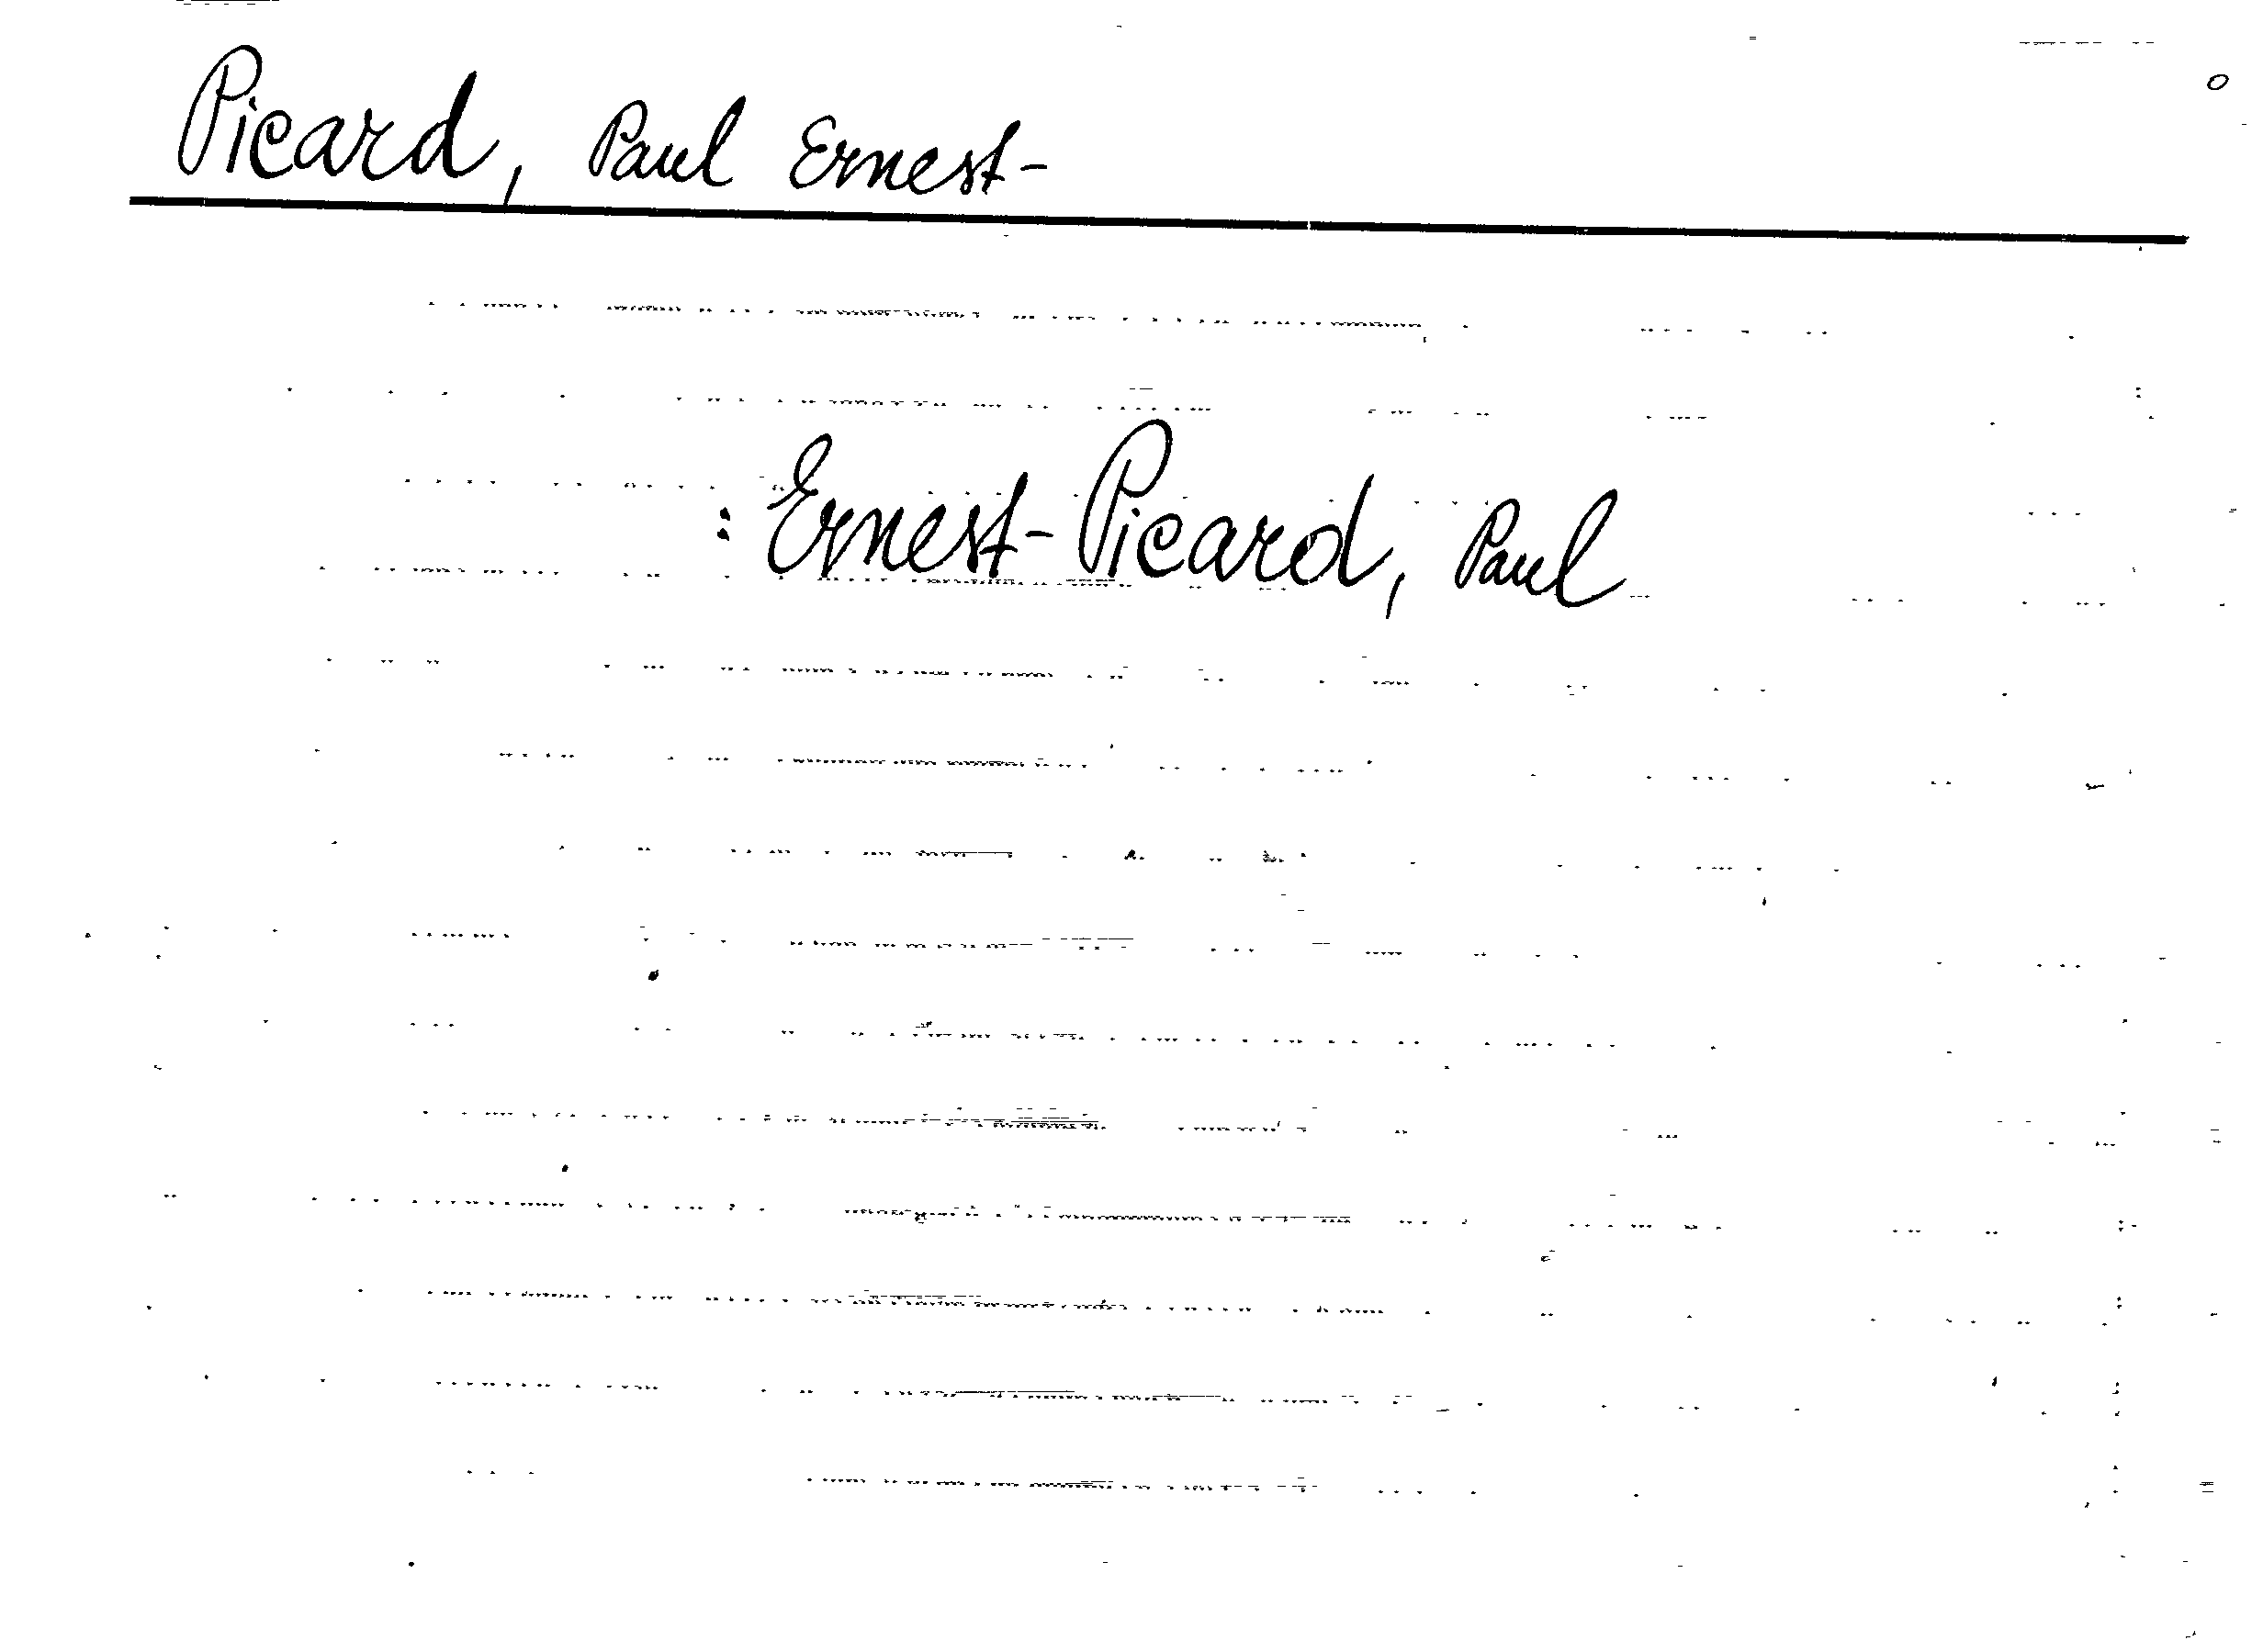 Picard, Paul Ernest-
: Ernest-Picard, Paul